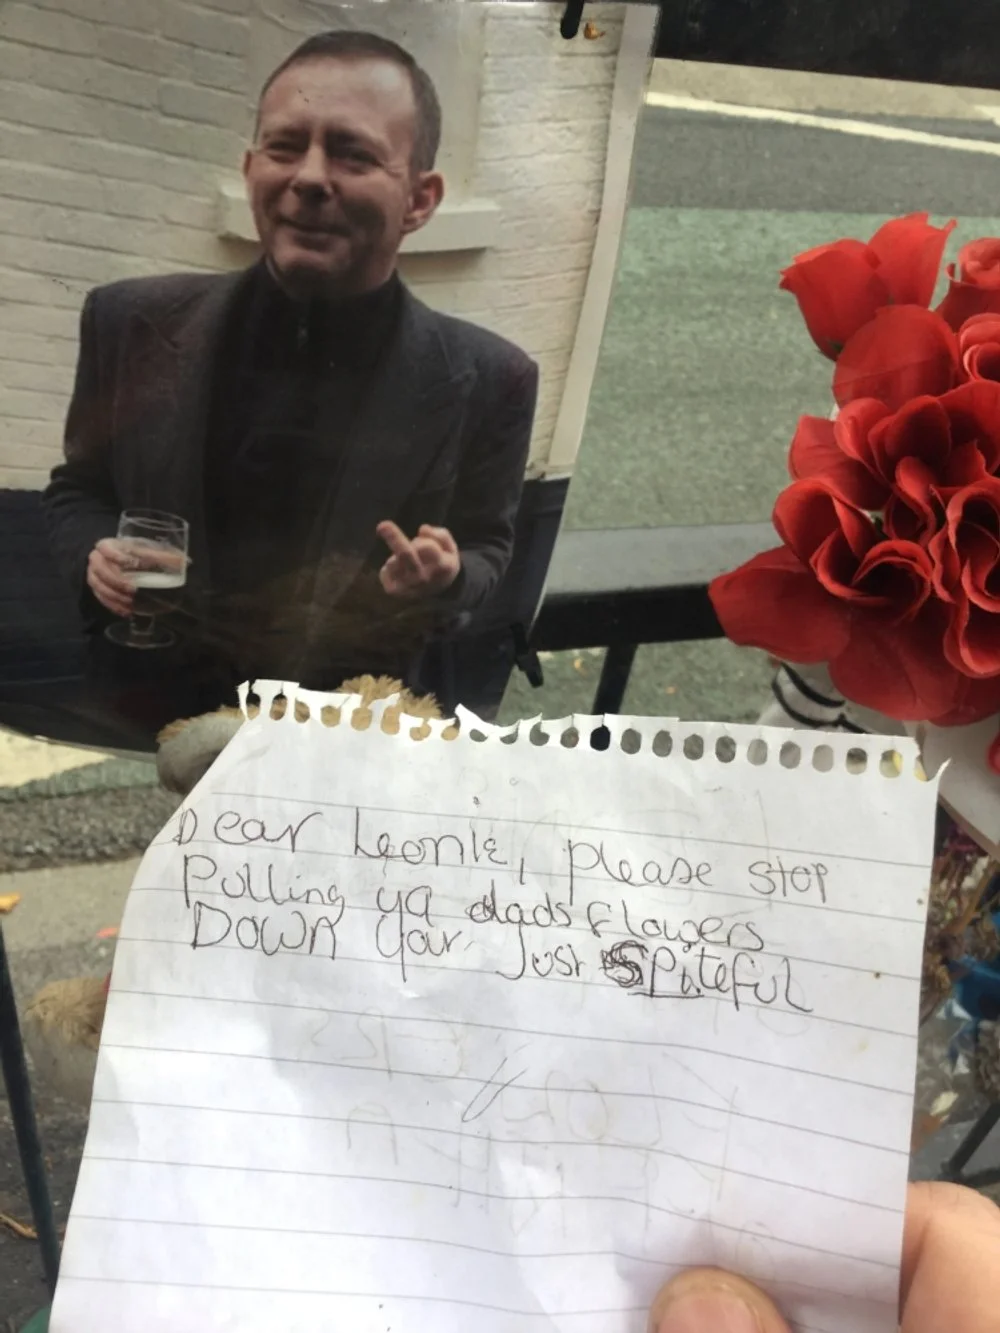 Dear Leonie, please stop
Pulling ya dads flowers
Down your just Spiteful